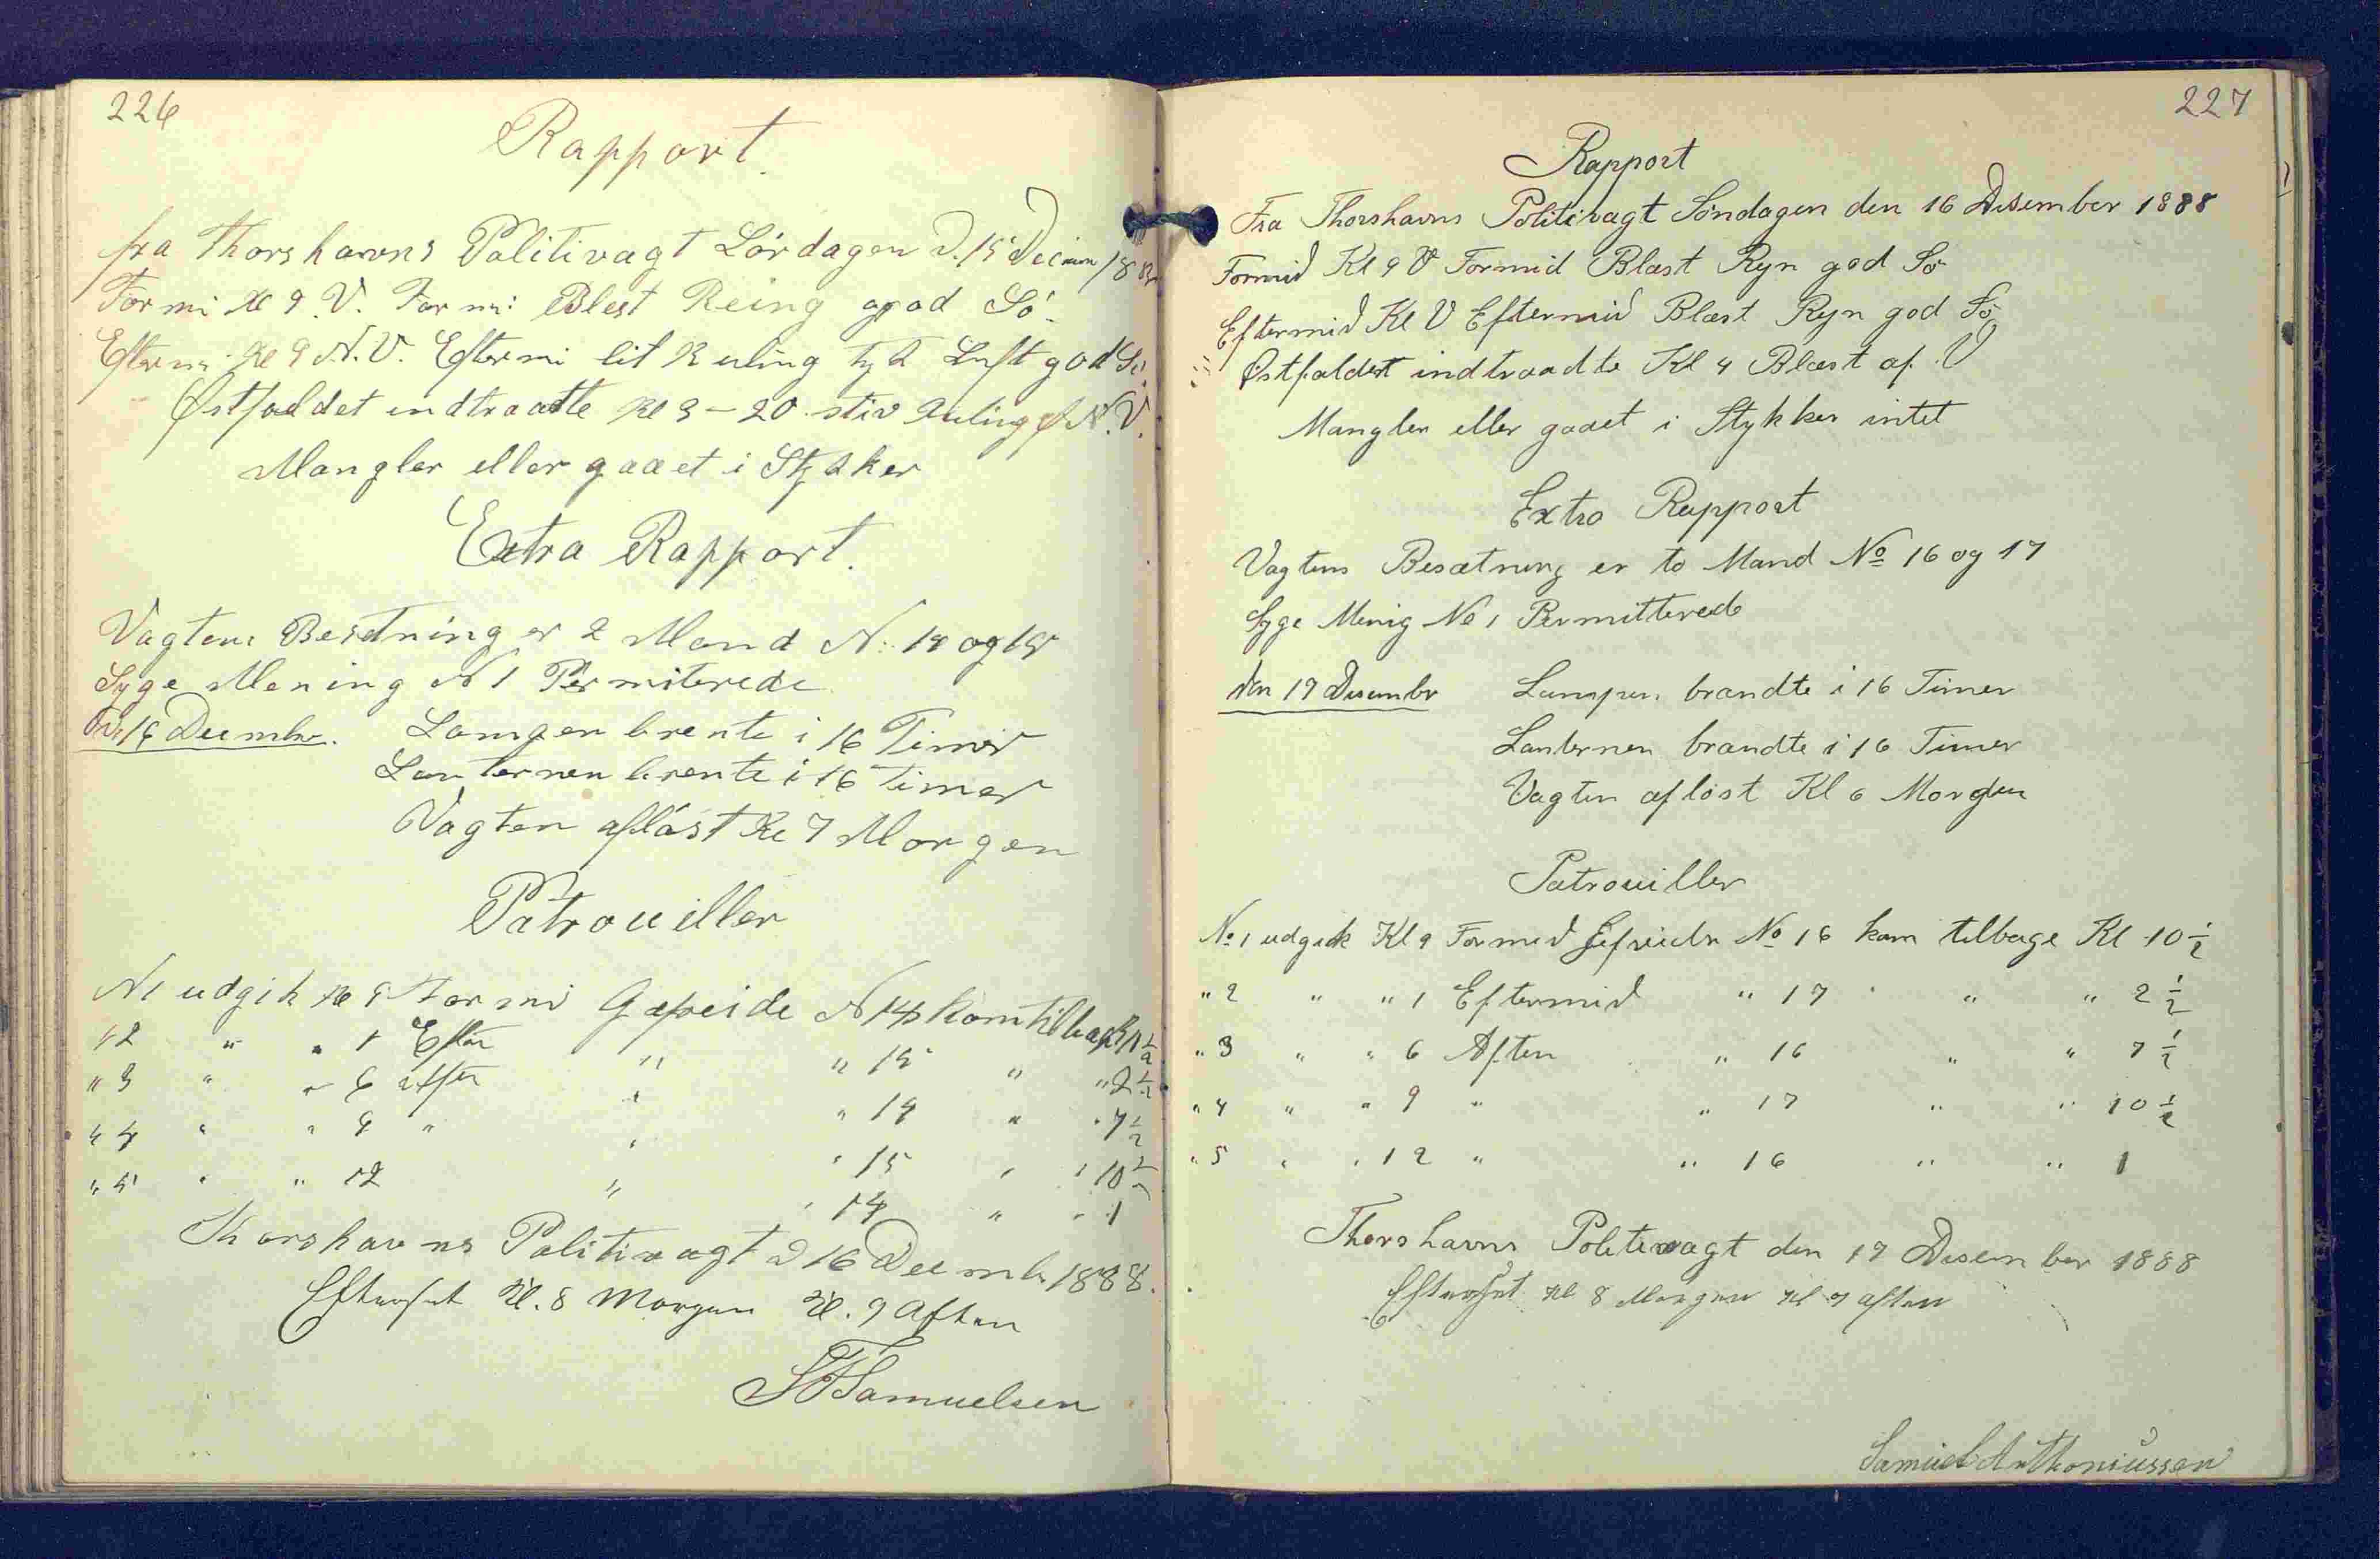 226
Rapport.
fra Thorshavns Politivagt Lördagen d. 15 Decem 188
Formi Kl 9 V. Formi Blest Reing god Sö.
Eftermi Kl 9 N.V. Eftermi lit Kuling tyk Luft god Sö.
Østfaldet indtraatte Kl 3-20 stiv Kuling af N.V.
Mangler eller gaaet i Stykker
Extra Rapport.
Vagtens Besetning er 2 Mand N. 14 og 15
Syge Mening N 1 Permiterede
16 Decembr. Lampen brente i 16 Timer
Lanternen brente i 16 Timer
Vagten aflöst Kl 7 Morgen
Patrouiller
N1 udgik Kl 9 Formi Gefreide N 14 kom tilbage 1/2
" 2 " " 1 Efter " " 15 " " 2 1/2
" 3 " " 6 Aften " " 14 " " 7 1/2
" 4 " " 9 " " " 15 " " 10 1/2
" 5 " " 12 " " 14 " " 1
Thorshavns Politivagt d 16 Decemb 1888.
Efterset Kl. 8 Morgen Kl. 9 Aften
Samuelsen
227
Rapport
Fra Thorshavns Politivagt Söndagen den 16 Desember 1888
Formid Kl 9 V Formid Blæst Ryn god Sö
Eftermid Kl V Eftermid Blæst Ryn god Sö
Østfaldet indtraadte Kl 4 Blæst af V
Mangler eller gaaet i Stykker intet
Extra Rapport
Vagtens Besætning er to Mand No 16 og 17
Syge Menig No 1 Permitterede
den 17 Desembr Lampen brandte i 16 Timer
Lanternen brandte i 16 Timer
Vagten aflöst Kl 6 Morgen
Patrouiller
No 1 udgik Kl 9 Formid Gefreider No 16 kom tilbage Kl 10 1/2
" 2 " " 1 Eftermid " 17 " " 2 1/2
" 3 " " 6 Aften " 16 " " 7 1/2
" 4 " " 9 " " 17 " " 10 1/2
" 5 " " 12 " " 16 " " 1
Thorshavns Politivagt den 17 Desember 1888
Efterset Kl 8 Morgen Kl 9 aften
Samuel Anthoniussen